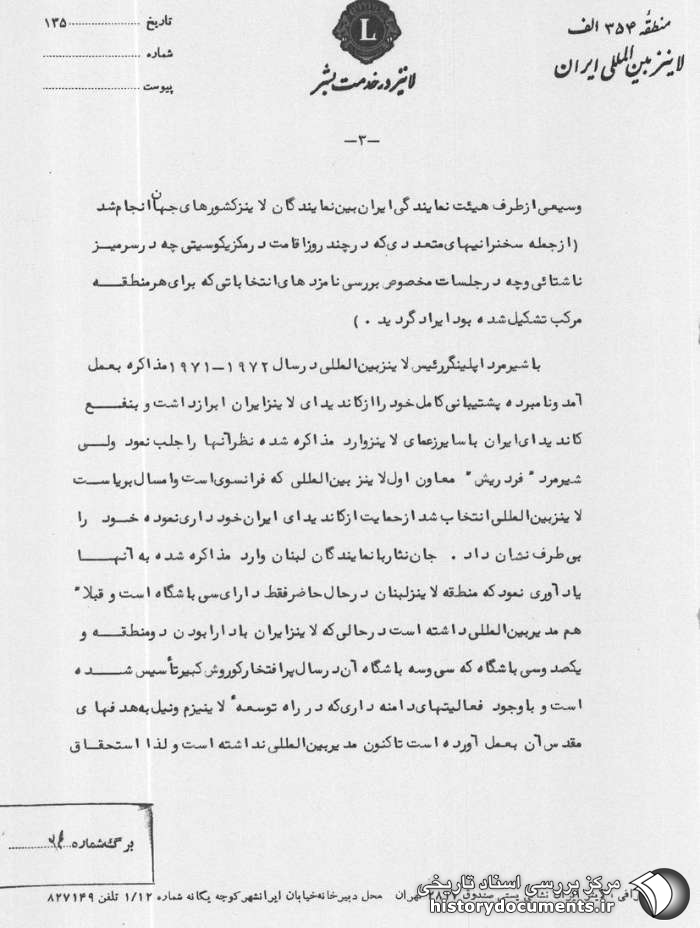 منطقهٔ ۳۵۴ الف
لاینز بین‌المللی ایران
L
لاینز در خدمت بشر
تاریخ ۱۳۵
شماره
پیوست
—۳—
وسیعی از طرف هیئت نمایندگی ایران بین نمایندگان لاینز کشورهای جهان انجام شد
(از جمله سخنرانیهای متعددی که در چند روز اقامت در مکزیکوسیتی چه در سر میز
ناشتائی و چه در جلسات مخصوص بررسی نامزدهای انتخاباتی که برای هر منطقه
مرکب تشکیل شده بود ایراد گردید . )
با شیرمرد اپلینگر رئیس لاینز بین المللی در سال ۱۹۷۲-۱۹۷۱ مذاکره بعمل
آمد و نامبرده پشتیبانی کامل خود را از کاندیدای لاینز ایران ابراز داشت و بنفع
کاندیدای ایران با سایر زعمای لاینز وارد مذاکره شده نظر آنها را جلب نمود ولی
شیرمرد " فرد ریش " معاون اول لاینز بین المللی که فرانسوی است و امسال بریاست
لاینز بین المللی انتخاب شد از حمایت از کاندیدای ایران خودداری نموده خود را
بی طرف نشان داد . جان نثار با نمایندگان لبنان وارد مذاکره شده به آنها
یادآوری نمود که منطقه لاینز لبنان در حال حاضر فقط دارای سی باشگاه است و قبلا"
هم مدیر بین المللی داشته است در حالی که لاینز ایران با دارا بودن دو منطقه و
یکصد و سی باشگاه که سی و سه باشگاه آن در سال پر افتخار کوروش کبیر تأسیس شده
است و با وجود فعالیتهای دامنه داری که در راه توسعهٔ لاینیزم و نیل به هدفهای
مقدس آن بعمل آورده است تاکنون مدیر بین المللی نداشته است و لذا استحقاق
برگه شماره
تهران محل دبیرخانه خیابان ایرانشهر کوچه یگانه شماره ۱/۱۲ تلفن ۸۲۷۱۴۹
مرکز بررسی اسناد تاریخی
historydocuments.ir